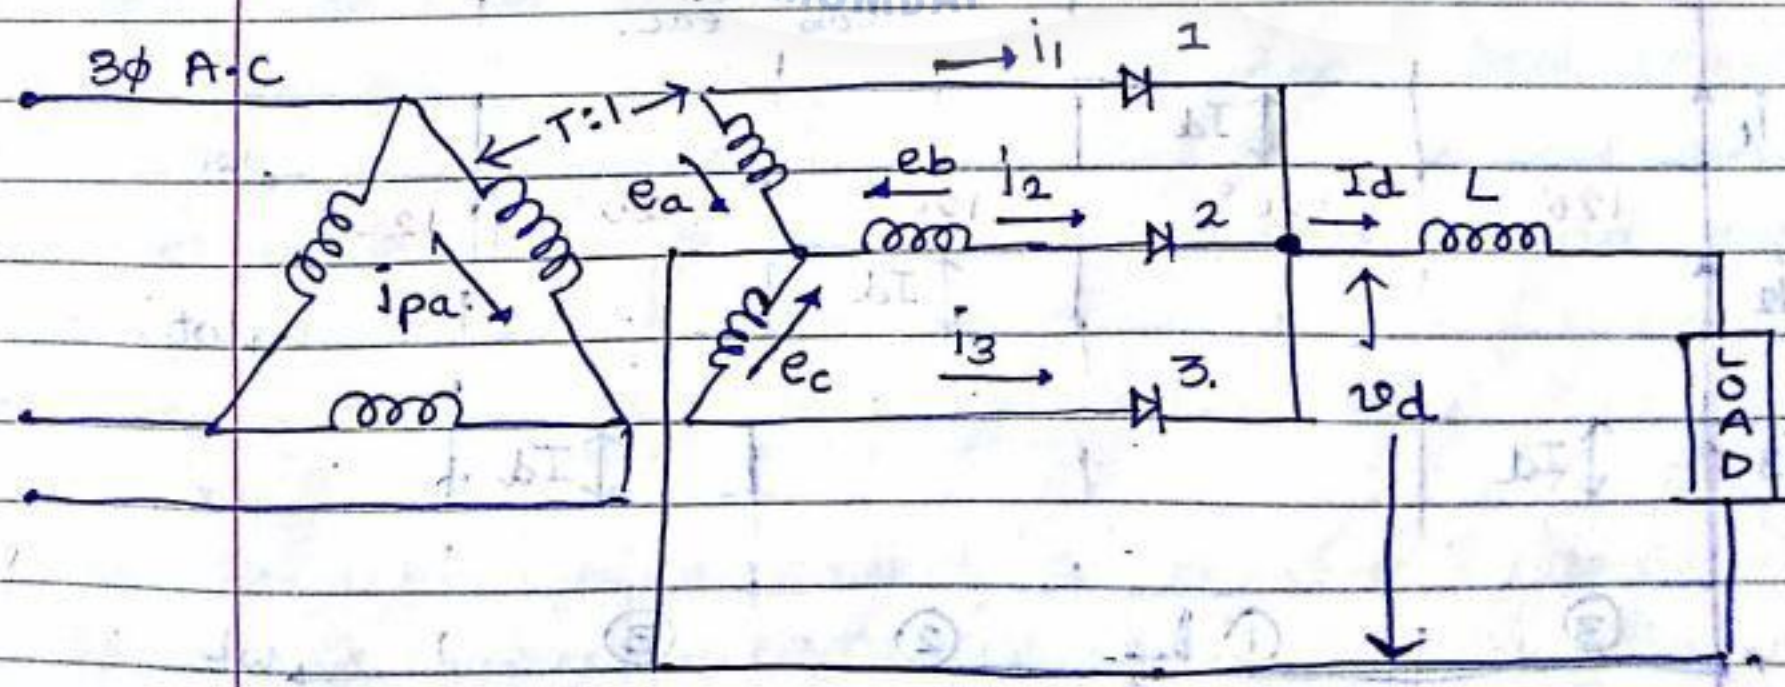 3φ A.C
T:1
i1
1
ea
eb
i2
2
Id
L
ipa:
ec
i3
3.
vd
LOAD